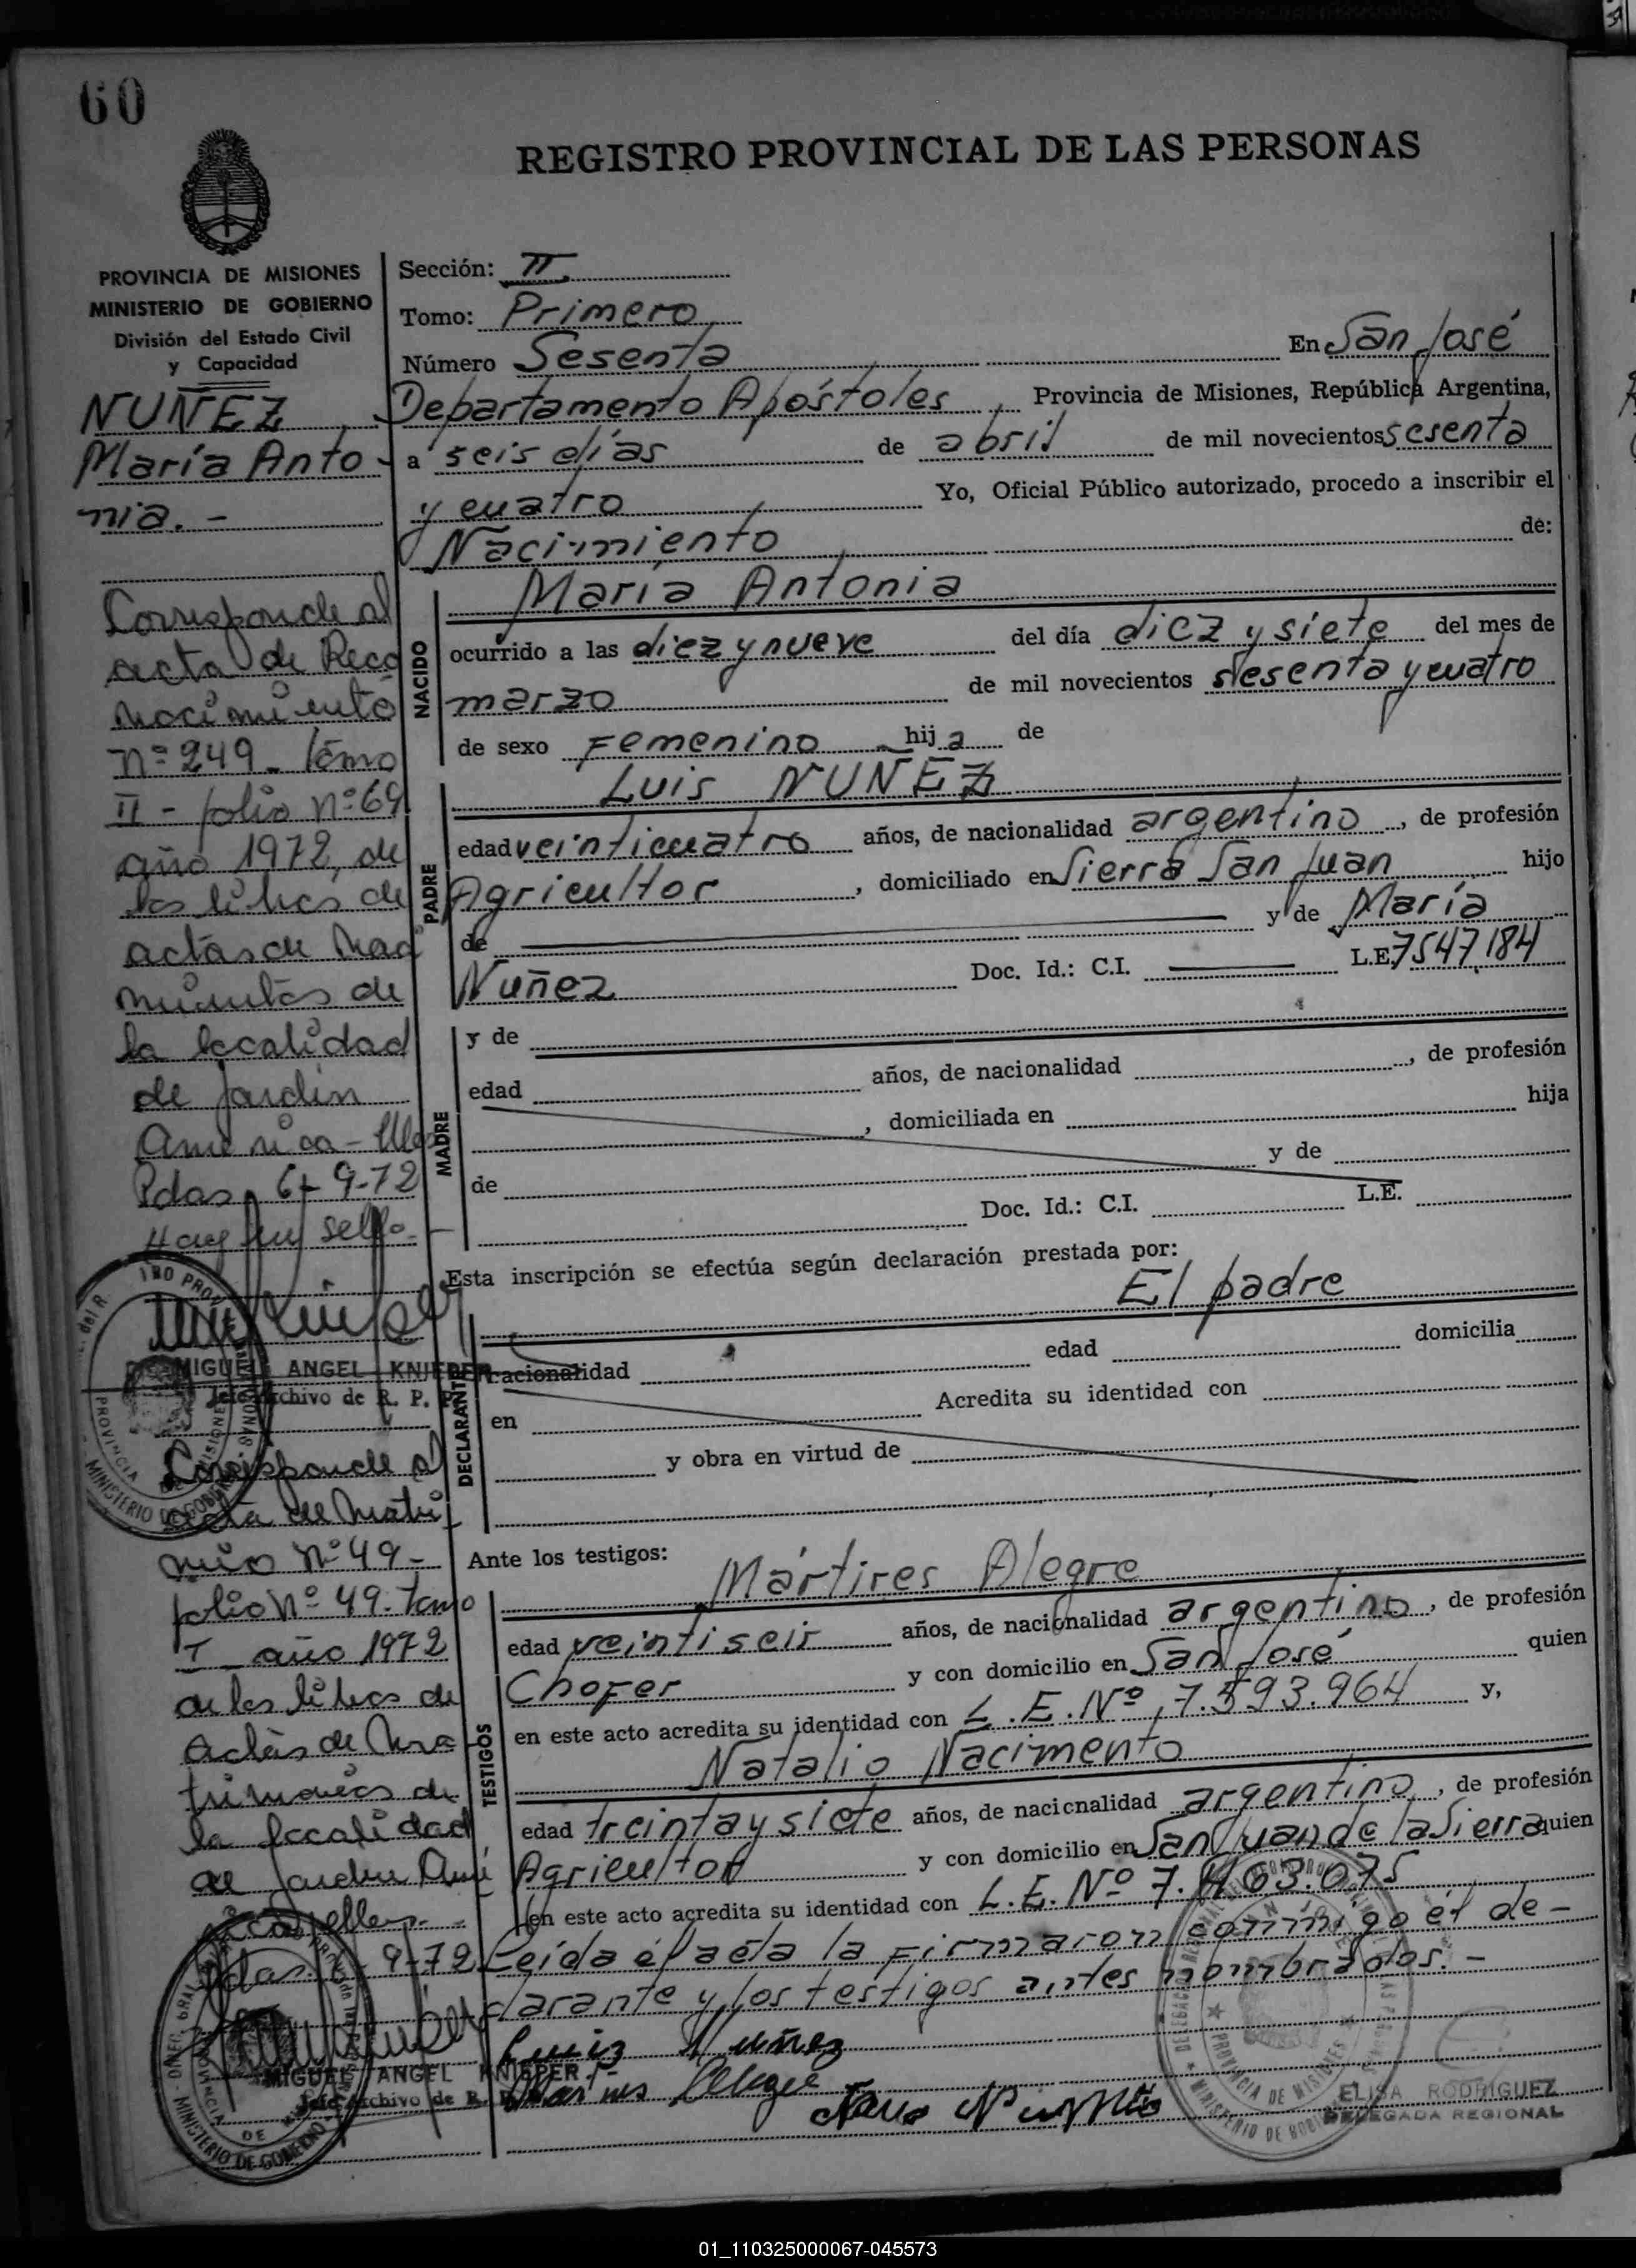 60
REGISTRO PROVINCIAL DE LAS PERSONAS
PROVINCIA DE MISIONES
MINISTERIO DE GOBIERNO
División del Estado Civil
y Capacidad
NUÑEZ,
María Anto-
nia. -
Corresponde al
acta de Reco
nocimiento
nº 249 - Tomo
II - folio nº 69
año 1972, de
los libros de
actas de Naci
mientos de
la localidad
de Jardín
America -
Pdas, 6-9-72
Hay un sello -
MIGUEL ANGEL KNIEPER
Jefe Archivo de R. P.
Corresponde al
acta de Matri
nio Nº 49 -
folio Nº 49. Tomo
I - año 1972
de los libros de
Actas de Ma
trimonios de
la localidad
de Jardín Amé
Pdas 6-9-72
MIGUEL ANGEL KNIEPER
Jefe Archivo de R.
Sección: II.
Tomo: Primero
Número Sesenta En San José
Departamento Apóstoles, Provincia de Misiones, República Argentina,
a seis días de abril de mil novecientos sesenta
y cuatro Yo, Oficial Público autorizado, procedo a inscribir el
Nacimiento de:
NACIDO
María Antonia
ocurrido a las diez y nueve del día diez y siete del mes de
marzo de mil novecientos sesenta y cuatro
de sexo Femenino hija de
PADRE
Luis NUÑEZ
edad veinticuatro años, de nacionalidad argentino, de profesión
Agricultor, domiciliado en Sierra San Juan hijo
de y de María
Nuñez Doc. Id.: C.I. L.E. 7547.184
MADRE
y de
edad años, de nacionalidad , de profesión
, domiciliada en hija
de y de
Doc. Id.: C.I. L.E.
Esta inscripción se efectúa según declaración prestada por:
El padre
DECLARANTE
nacionalidad edad domicilia
en Acredita su identidad con
y obra en virtud de
Ante los testigos:
TESTIGOS
Mártires Alegre
edad veintiseis años, de nacionalidad argentino, de profesión
Chofer y con domicilio en San José quien
en este acto acredita su identidad con L.E.Nº 7.593.964 y,
Natalio Nacimento
edad treinta y siete años, de nacionalidad argentino, de profesión
Agricultor y con domicilio en San Juan de la Sierra quien
en este acto acredita su identidad con L.E. Nº 7.463.075
Leída el acta la Firmaron conmigo el de-
clarante y los testigos antes nombrados. -
Luiz Nuñez
ELISA RODRIGUEZ
DELEGADA REGIONAL
PROVINCIA DE MISIONES
MINISTERIO DE GOBIERNO
01_110325000067-045573